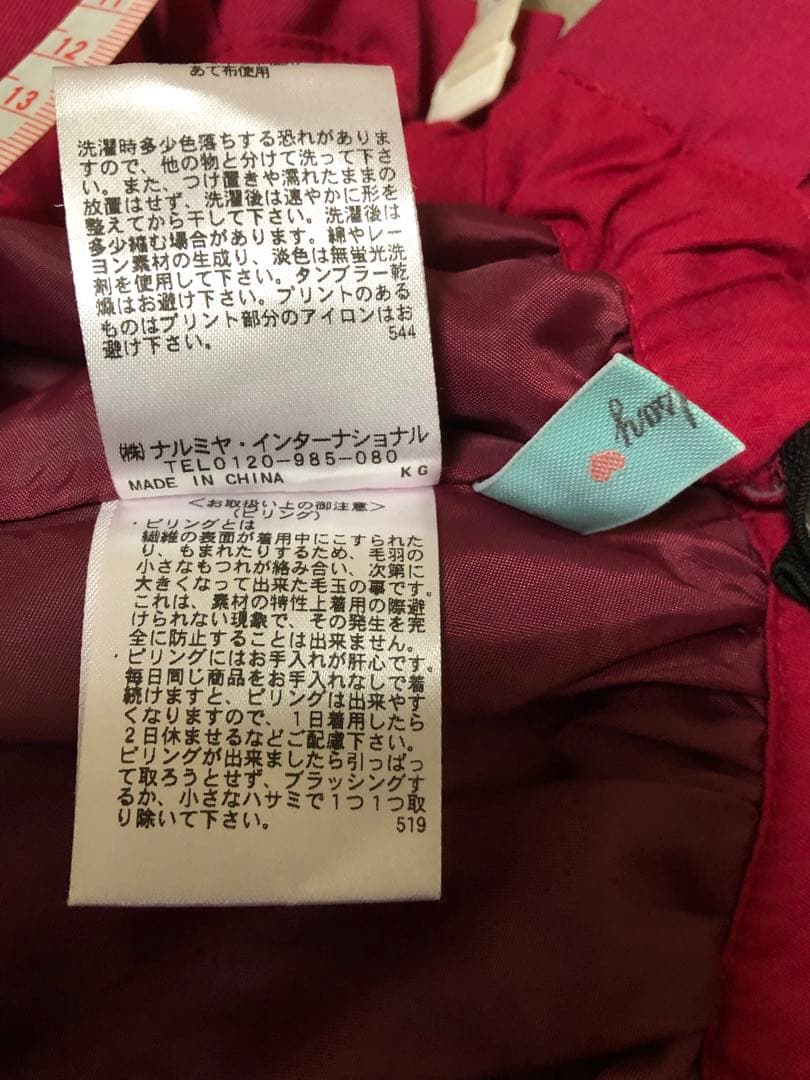 11
12
13
あて布使用
洗濯時多少色落ちする恐れがありま
すので、他の物と分けて洗って下さ
い。また、つけ置きや濡れたままの
放置はせず、洗濯後は速やかに形を
整えてから干して下さい。洗濯後は
多少縮む場合があります。綿やレー
ヨン素材の生成り、淡色は無蛍光洗
剤を使用して下さい。タンブラー乾
燥はお避け下さい。プリントのある
ものはプリント部分のアイロンはお
避け下さい。 544
㈱ ナルミヤ・インターナショナル
TEL0120-985-080
MADE IN CHINA KG
<お取扱い上の御注意>
(ピリング)
・ピリングとは
繊維の表面が着用中にこすられた
り、もまれたりするため、毛羽の
小さなもつれが絡み合い、次第に
大きくなって出来た毛玉の事です。
これは、素材の特性上着用の際避
けられない現象で、その発生を完
全に防止することは出来ません。
・ピリングにはお手入れが肝心です。
毎日同じ商品をお手入れなしで着
続けますと、ピリングは出来やす
くなりますので、1日着用したら
2日休ませるなどご配慮下さい。
ピリングが出来ましたら引っぱっ
て取ろうとせず、ブラッシングす
るか、小さなハサミで1つ1つ取
り除いて下さい。 519